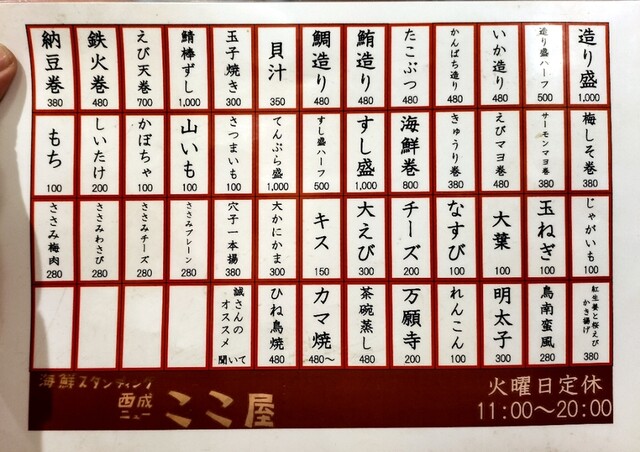 造り盛
1,000
造り盛ハーフ
500
いか造り
480
かんぱち造り
480
たこぶつ
480
鮪造り
480
鯛造り
480
貝汁
350
玉子焼き
300
鯖棒ずし
1,000
えび天巻
700
鉄火巻
480
納豆巻
380
梅しそ巻
380
サーモンマヨ巻
380
えびマヨ巻
480
きゅうり巻
380
海鮮巻
800
すし盛
1,000
すし盛ハーフ
500
てんぷら盛
1,000
さつまいも
100
山いも
100
かぼちゃ
100
しいたけ
200
もち
100
じゃがいも
100
玉ねぎ
100
大葉
100
なすび
100
チーズ
200
大えび
300
キス
150
大かにかま
300
穴子一本揚
380
ささみプレーン
280
ささみチーズ
280
ささみわさび
280
ささみ梅肉
280
紅生姜と桜えび
かき揚げ
380
鳥南蛮風
280
明太子
300
れんこん
100
万願寺
200
茶碗蒸し
480
カマ焼
480～
ひね鳥焼
480
誠さんの
オススメ
聞いて
海鮮スタンディング
西成
ニュー
ここ屋
火曜日定休
11:00～20:00